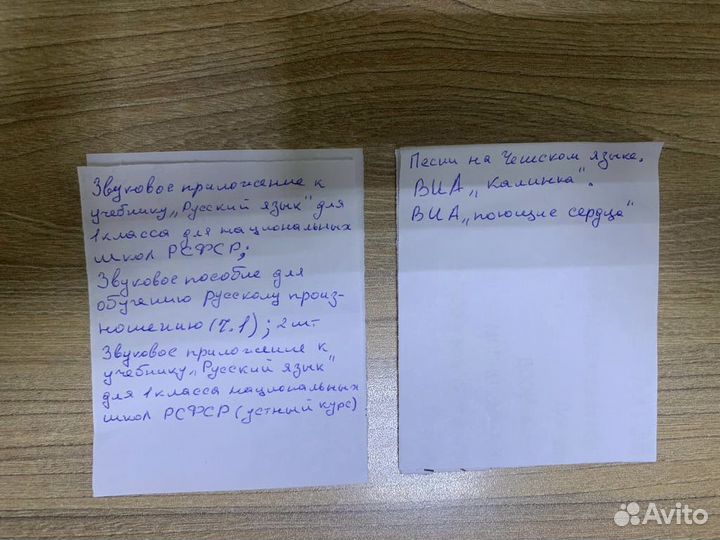 Звуковое приложение к
учебнику „Русский язык" для
1 класса для национальных
школ РСФСР;
Звуковое пособие для
обучению русскому произ-
ношению (Ч.1); 2 шт.
Звуковое приложение к
учебнику „Русский язык"
для 1 класса национальных
школ РСФСР (устный курс)
Песни на Чешском языке.
ВИА „Калинка".
ВИА „поющие сердца"
Avito